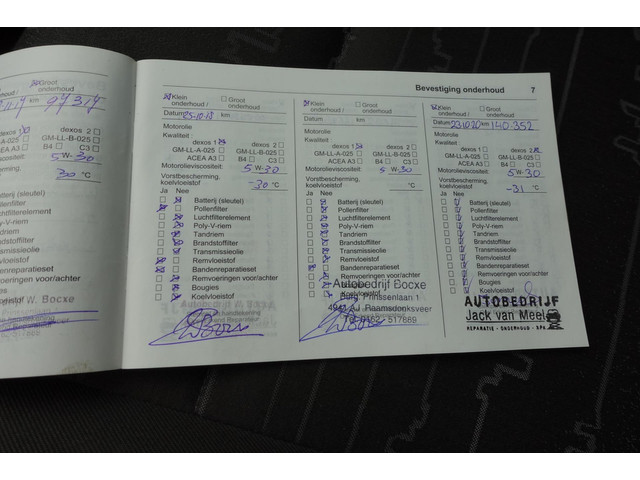 Groot
onderhoud
km 97317
dexos 2
GM-LL-B-025
B4 C3
5 W-30
-30 °C
Bocxe
Bevestiging onderhoud 7
Klein
onderhoud /
Groot
onderhoud
Datum 25-10-18 km
Motorolie
Kwaliteit:
dexos 1 dexos 2
GM-LL-A-025 GM-LL-B-025
ACEA A3 B4 C3
Motorolieviscositeit: 5 W-30
Vorstbescherming,
koelvloeistof -30 °C
Ja Nee
Batterij (sleutel)
Pollenfilter
Luchtfilterelement
Poly-V-riem
Tandriem
Brandstoffilter
Transmissieolie
Remvloeistof
Bandenreparatieset
Remvoeringen voor/achter
Bougies
Koelvloeistof
Klein
onderhoud /
Groot
onderhoud
Datum km
Motorolie
Kwaliteit:
dexos 1 dexos 2
GM-LL-A-025 GM-LL-B-025
ACEA A3 B4 C3
Motorolieviscositeit: 5 W-30
Vorstbescherming,
koelvloeistof -30 °C
Ja Nee
Batterij (sleutel)
Pollenfilter
Luchtfilterelement
Poly-V-riem
Tandriem
Brandstoffilter
Transmissieolie
Remvloeistof
Bandenreparatieset
Remvoeringen voor/achter
Bougies
Koelvloeistof
Autobedrijf Bocxe
Burg. Prinssenlaan 1
4941 AJ Raamsdonksveer
Tel. 0162-517889
Klein
onderhoud /
Groot
onderhoud
Datum 23-10-20 km 140.352
Motorolie
Kwaliteit:
dexos 1 dexos 2
GM-LL-A-025 GM-LL-B-025
ACEA A3 B4 C3
Motorolieviscositeit: 5 W-30
Vorstbescherming,
koelvloeistof -31 °C
Ja Nee
Batterij (sleutel)
Pollenfilter
Luchtfilterelement
Poly-V-riem
Tandriem
Brandstoffilter
Transmissieolie
Remvloeistof
Bandenreparatieset
Remvoeringen voor/achter
Bougies
Koelvloeistof
AUTOBEDRIJF
Jack van Meel
REPARATIE - ONDERHOUD - APK